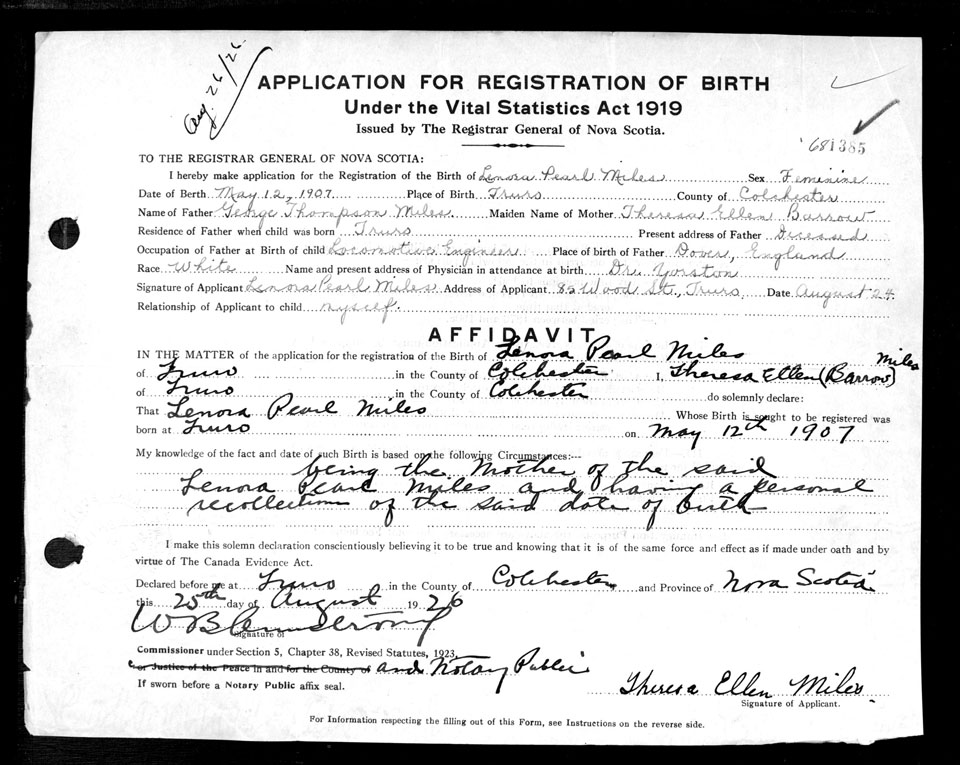 Aug. 26/26.
APPLICATION FOR REGISTRATION OF BIRTH
Under the Vital Statistics Act 1919
Issued by The Registrar General of Nova Scotia.
681385
TO THE REGISTRAR GENERAL OF NOVA SCOTIA:
I hereby make application for the Registration of the Birth of Lenora Pearl Miles Sex Feminine
Date of Birth May 12, 1907. Place of Birth Truro County of Colchester
Name of Father George Thompson Miles. Maiden Name of Mother Theresa Ellen Barrow
Residence of Father when child was born Truro Present address of Father Deceased
Occupation of Father at Birth of child Locomotive Engineer Place of birth of Father Dover, England
Race White Name and present address of Physician in attendance at birth Dr. Yorston
Signature of Applicant Lenora Pearl Miles Address of Applicant 82 Wood St., Truro Date August 24.
Relationship of Applicant to child myself.
AFFIDAVIT
IN THE MATTER of the application for the registration of the Birth of Lenora Pearl Miles
of Truro in the County of Colchester I, Theresa Ellen (Barrow) Miles
of Truro in the County of Colchester do solemnly declare:
That Lenora Pearl Miles Whose Birth is sought to be registered was
born at Truro on May 12th 1907
My knowledge of the fact and date of such Birth is based on the following Circumstances:--
being the Mother of the said
Lenora Pearl Miles and having a personal
recollection of the said date of birth
I make this solemn declaration conscientiously believing it to be true and knowing that it is of the same force and effect as if made under oath and by
virtue of The Canada Evidence Act.
Declared before me at Truro in the County of Colchester and Province of Nova Scotia
this 25th day of August 1926
W B Armstrong
Signature of
Commissioner under Section 5, Chapter 38, Revised Statutes, 1923,
or Justice of the Peace in and for the County of and Notary Public
If sworn before a Notary Public affix seal.
Theresa Ellen Miles.
Signature of Applicant.
For Information respecting the filling out of this Form, see Instructions on the reverse side.